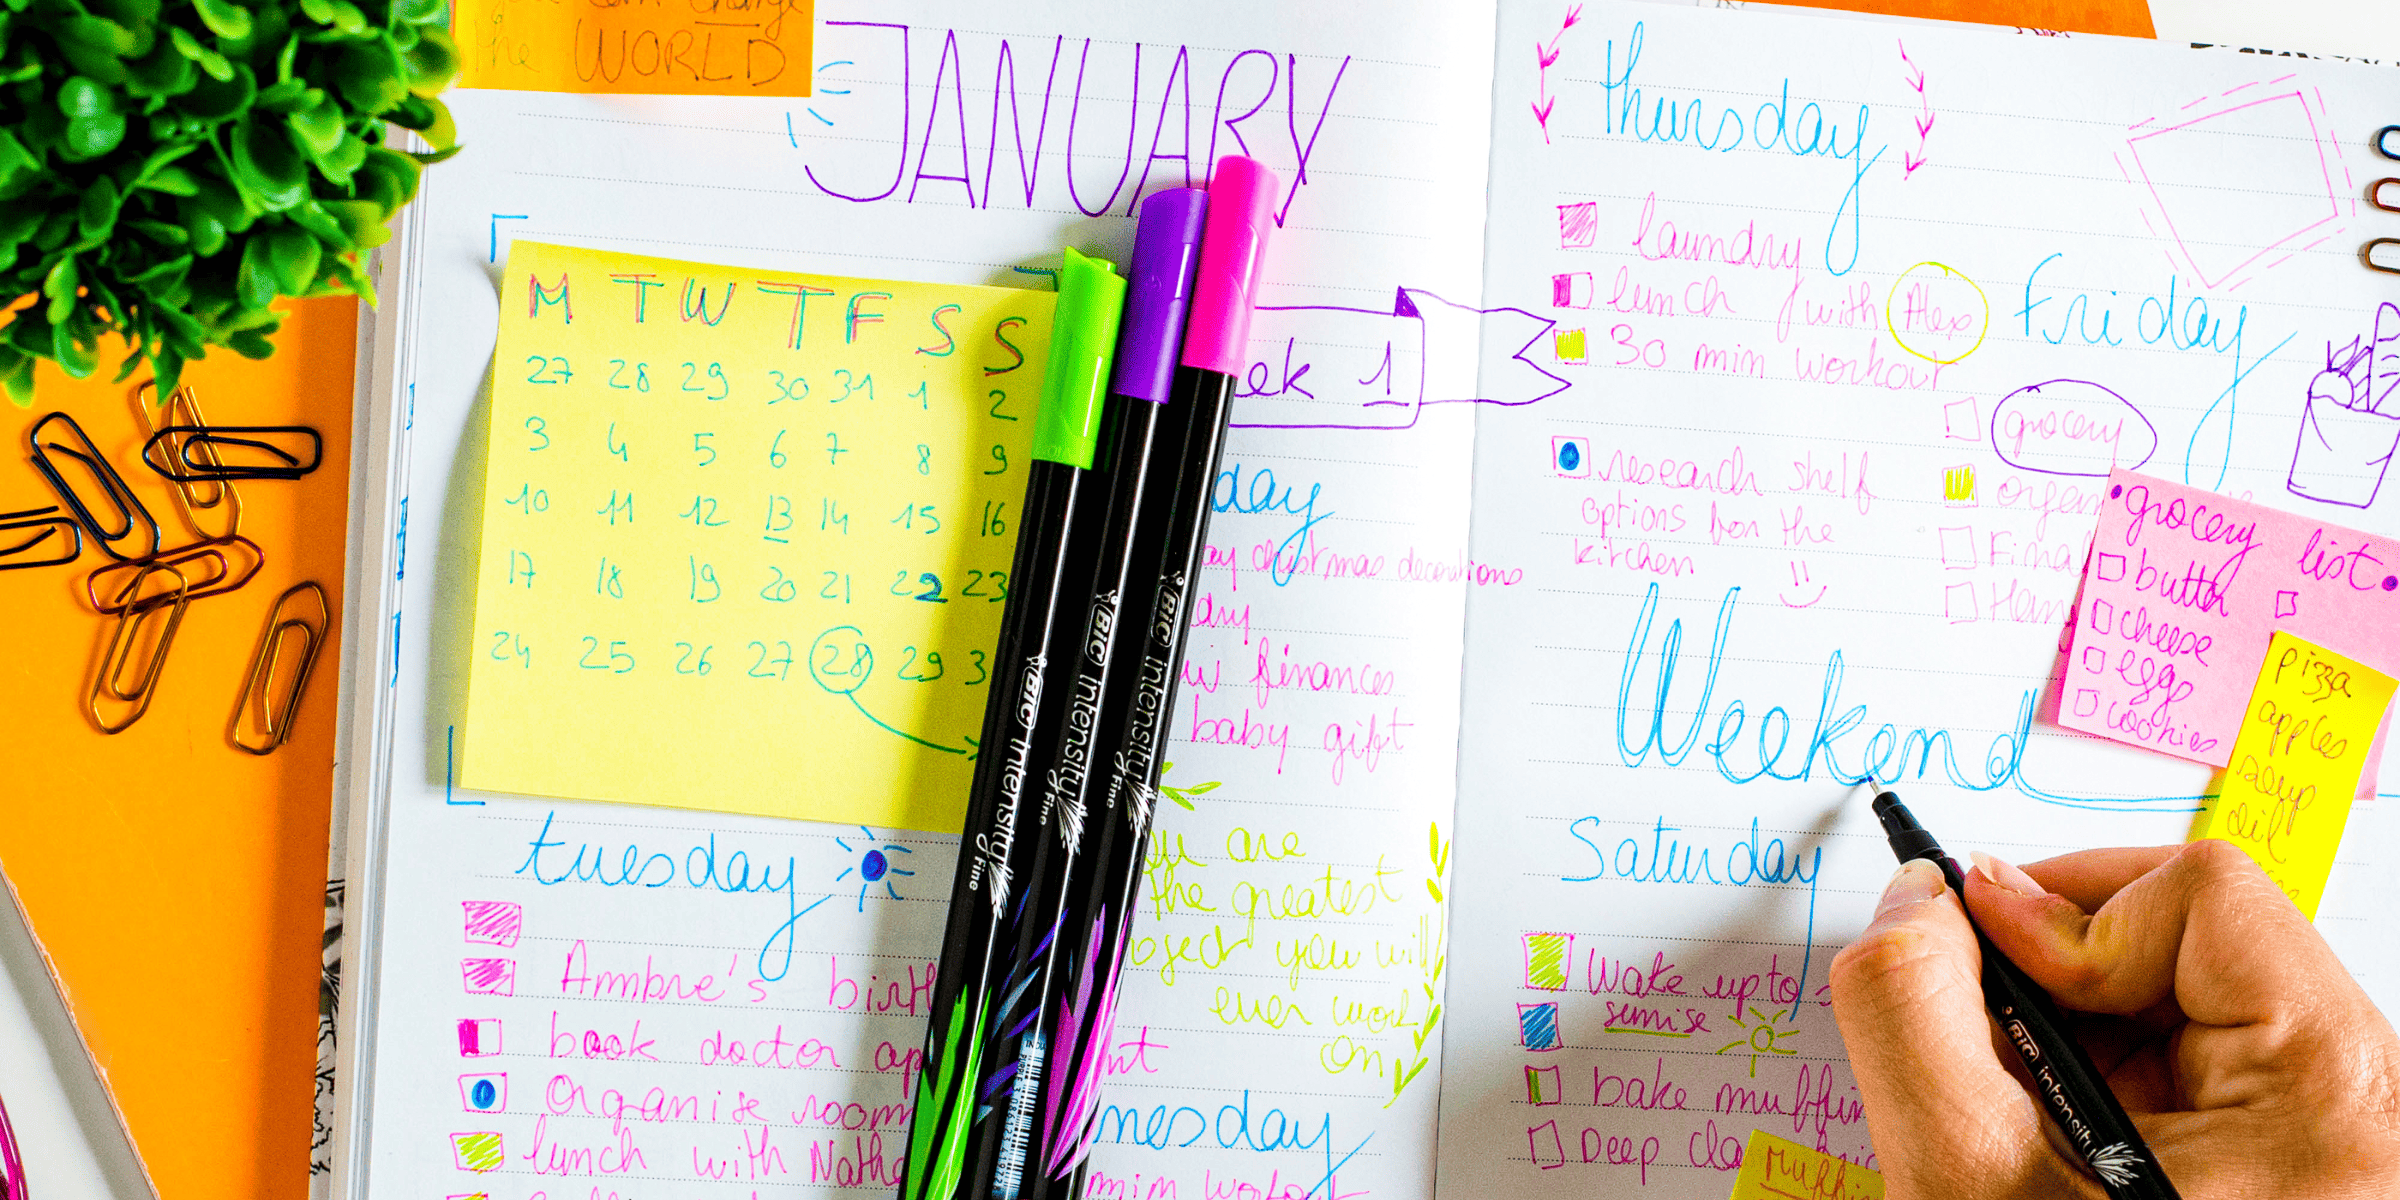 the WORLD
JANUARY
M T W T F S S
27 28 29 30 31 1 2
3 4 5 6 7 8 9
10 11 12 13 14 15 16
17 18 19 20 21 22 23
24 25 26 27 28 29 3
ek 1
day
ay christmas decorations
finances
baby gift
are
the greatest
you will
ever work
on
tuesday
Ambre's birth
book doctor ap nt
organise room
lunch with Natha
nesday
min workout
BIC intensity Fine
BIC intensity Fine
BIC intensity Fine
thursday
laundry
lunch with Alex
30 min workout
research shelf
options for the
kitchen
Friday
grocery
organ
Final
grocery list
butter
cheese
eggs
cookies
pizza
apples
soup
oil
Weekend
Saturday
Wake up to s
sunrise
bake muffin
Deep cl
Muffin
BIC intensity